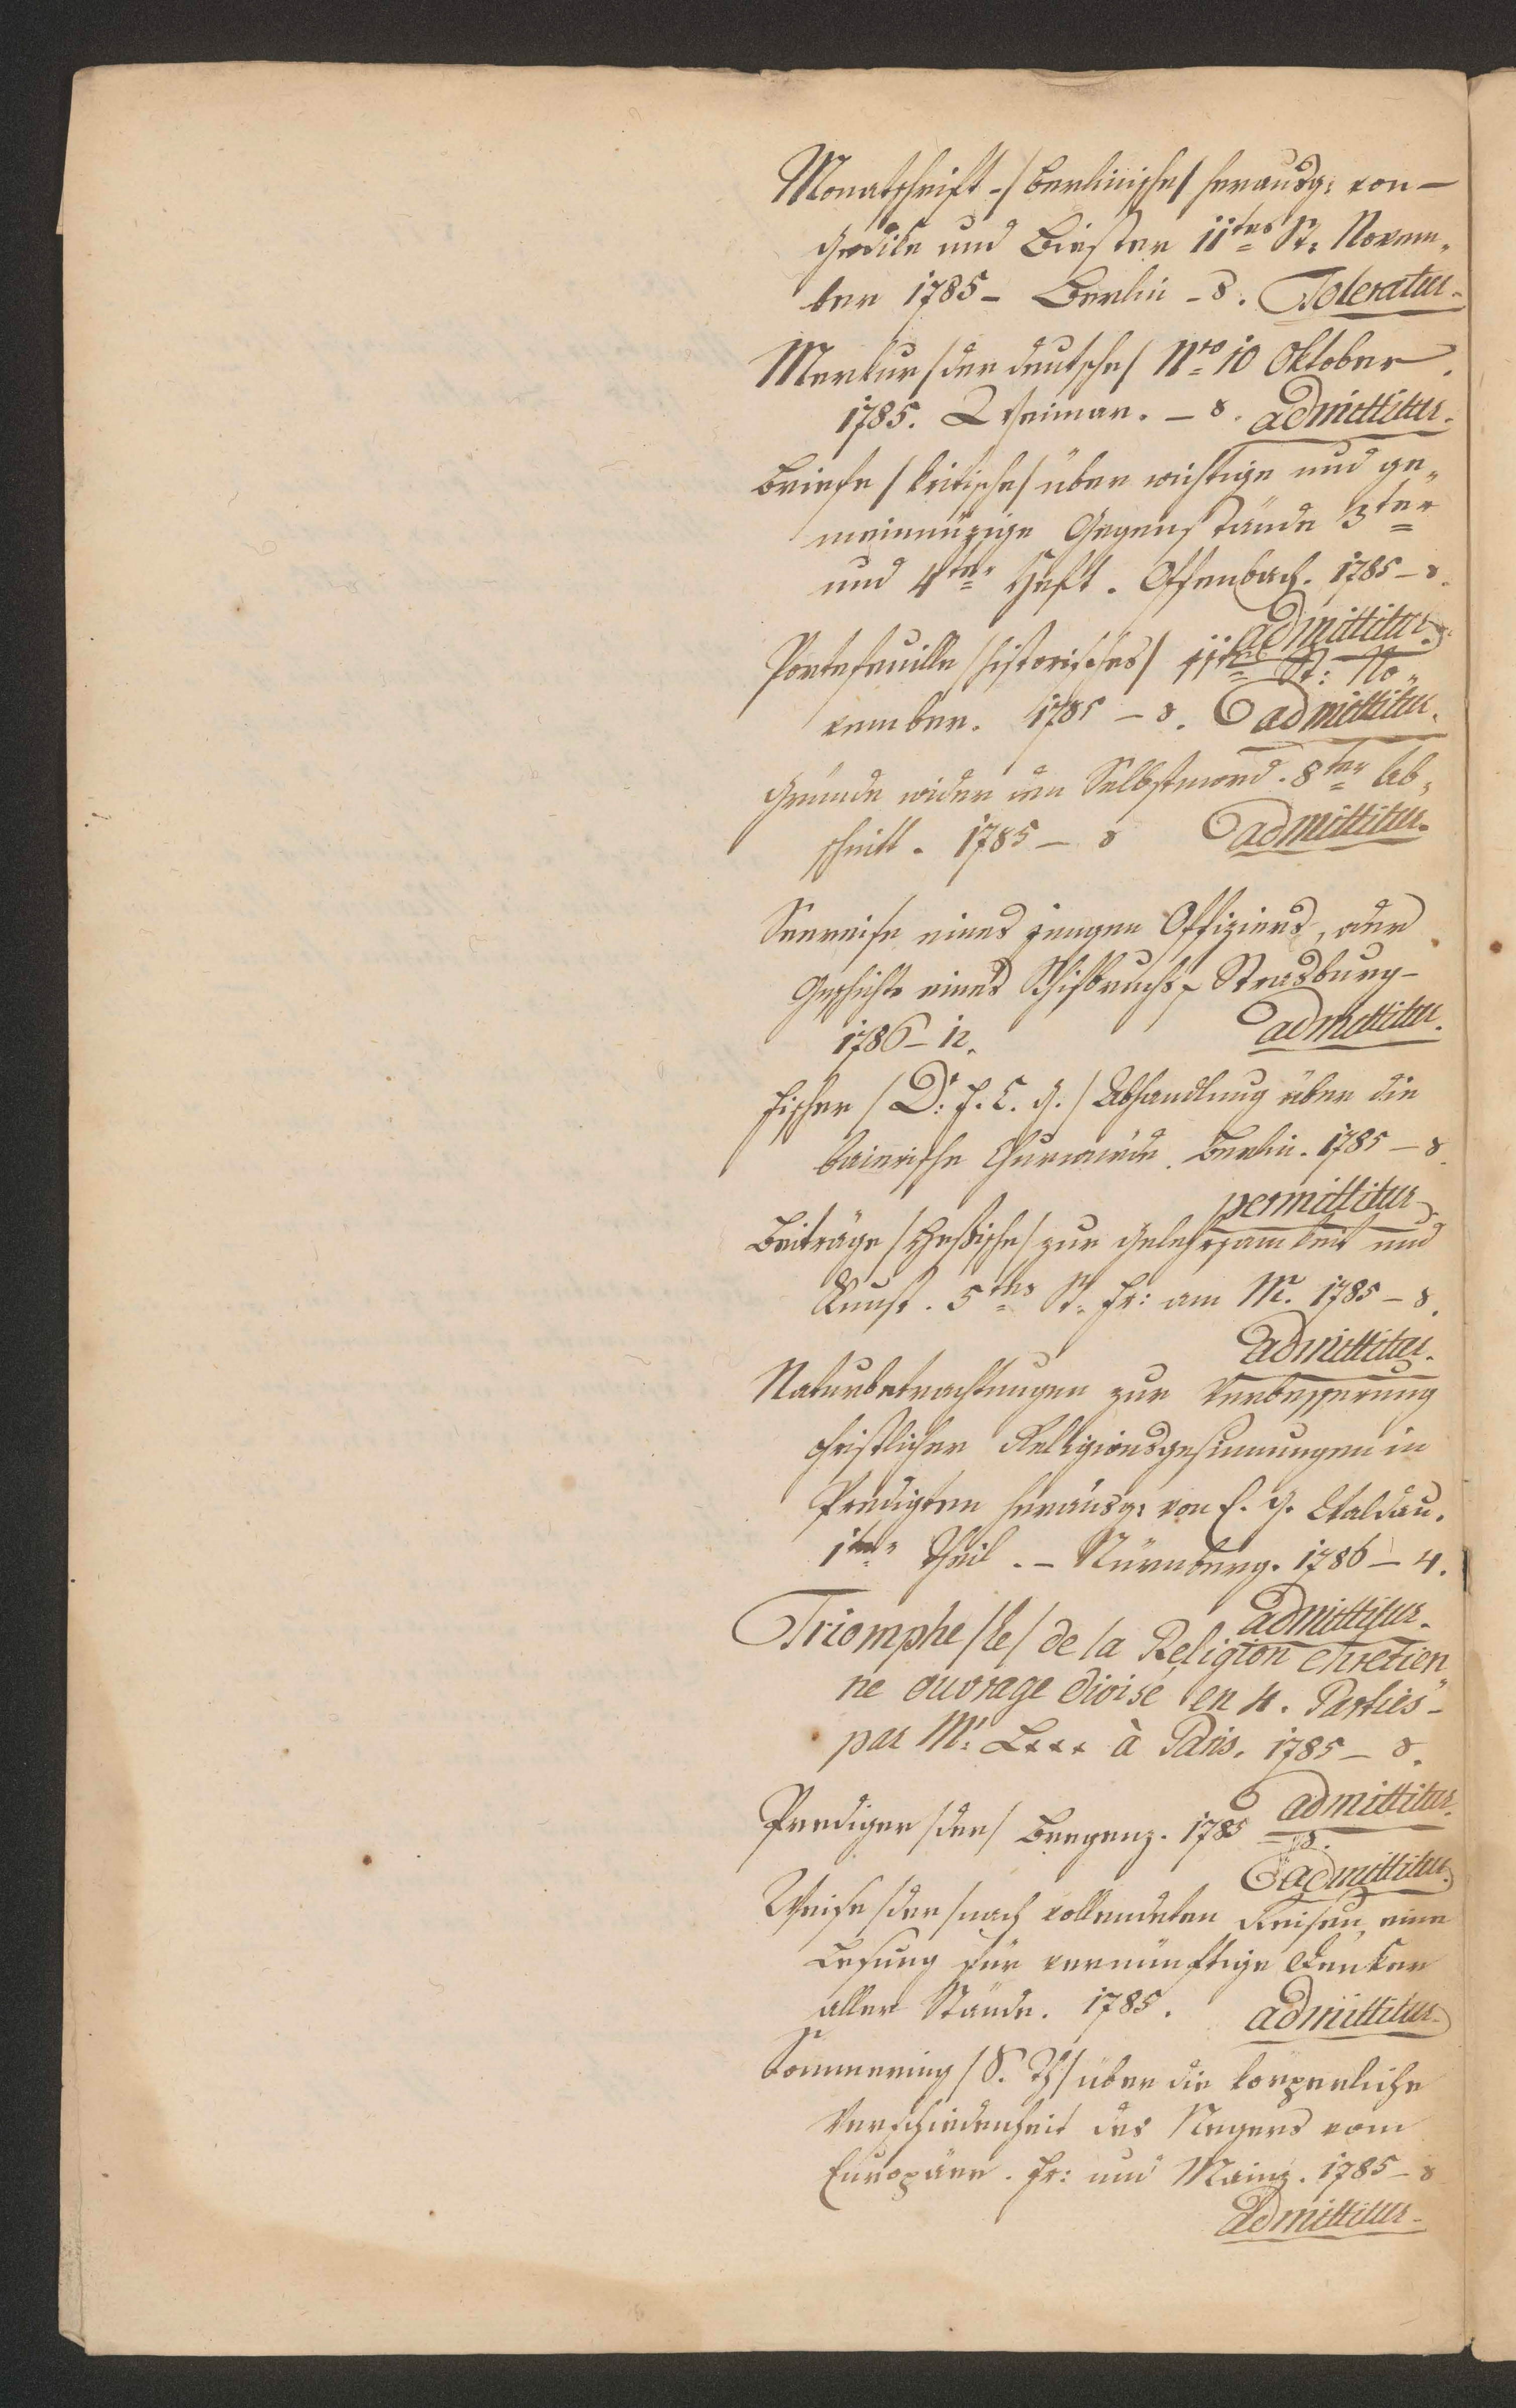 Monatschrift - /berlinische/ herausg: von -
Gedike und Biester 11tes St. Novem„
ber 1785 - Berlin - 8. Toleratur.
Merkur /der deutsche/ Nro 10 Oktober
1785. Weimar. - 8. admittitur.
Briefe /kritische/ über wichtige und ge„
meinnüzige Gegenstände 3ter
und 4ter Heft. Offenbach. 1785 - 8.
admittitur.
Portefeuille /historisches/ 11tes St: No„
vember. 1785 - 8. admittitur.
Gründe wider den Selbstmord. 8ter Ab„
schnitt. 1785 - 8 admittitur.
Seereise eines jungen Offiziers, oder
Geschichte eines Schifbruchs, Strasburg -
1786 - 12. admittitur.
Fischer /Dr: F. C. J./ Abhandlung über die
bairische Churwürde. Berlin. 1785 - 8.
permittitur
Beiträge /Hessische/ zur Gelehrsamkeit und
Kunst. 5tes St. Fr: am M. 1785 - 8.
admittitur.
Naturbetrachtungen zur Verbesserung
christlicher Religionsgesinnungen in
Predigten herausg: von E. G. Waldau.
1ter Theil. - Nürnberg. 1786 - 4.
admittitur.
Triomphe /le/ de la Religion chretien„
ne ouvrage divisé en 4. Parties -
par Mr: L*** à Paris. 1785 - 8.
admittitur.
Prediger /der/ Bregenz. 1785 - 8.
admittitur.
Weise /der/ nach vollendeten Reisen, eine
Lesung für vernünftige Denker
aller Stände. 1785. admittitur.
Sömmering /S. Th/ über die körperliche
Verschiedenheit des Negers vom
Europäer. Fr: und Mainz. 1785 - 8
admittitur.